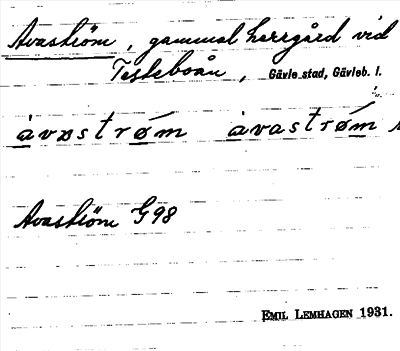 Avaström, gammal herrgård vid
Testeboån, Gävle stad, Gävleb. l.
àvastrøm àvastrøḿ
Avaström G98
Emil Lemhagen 1931.